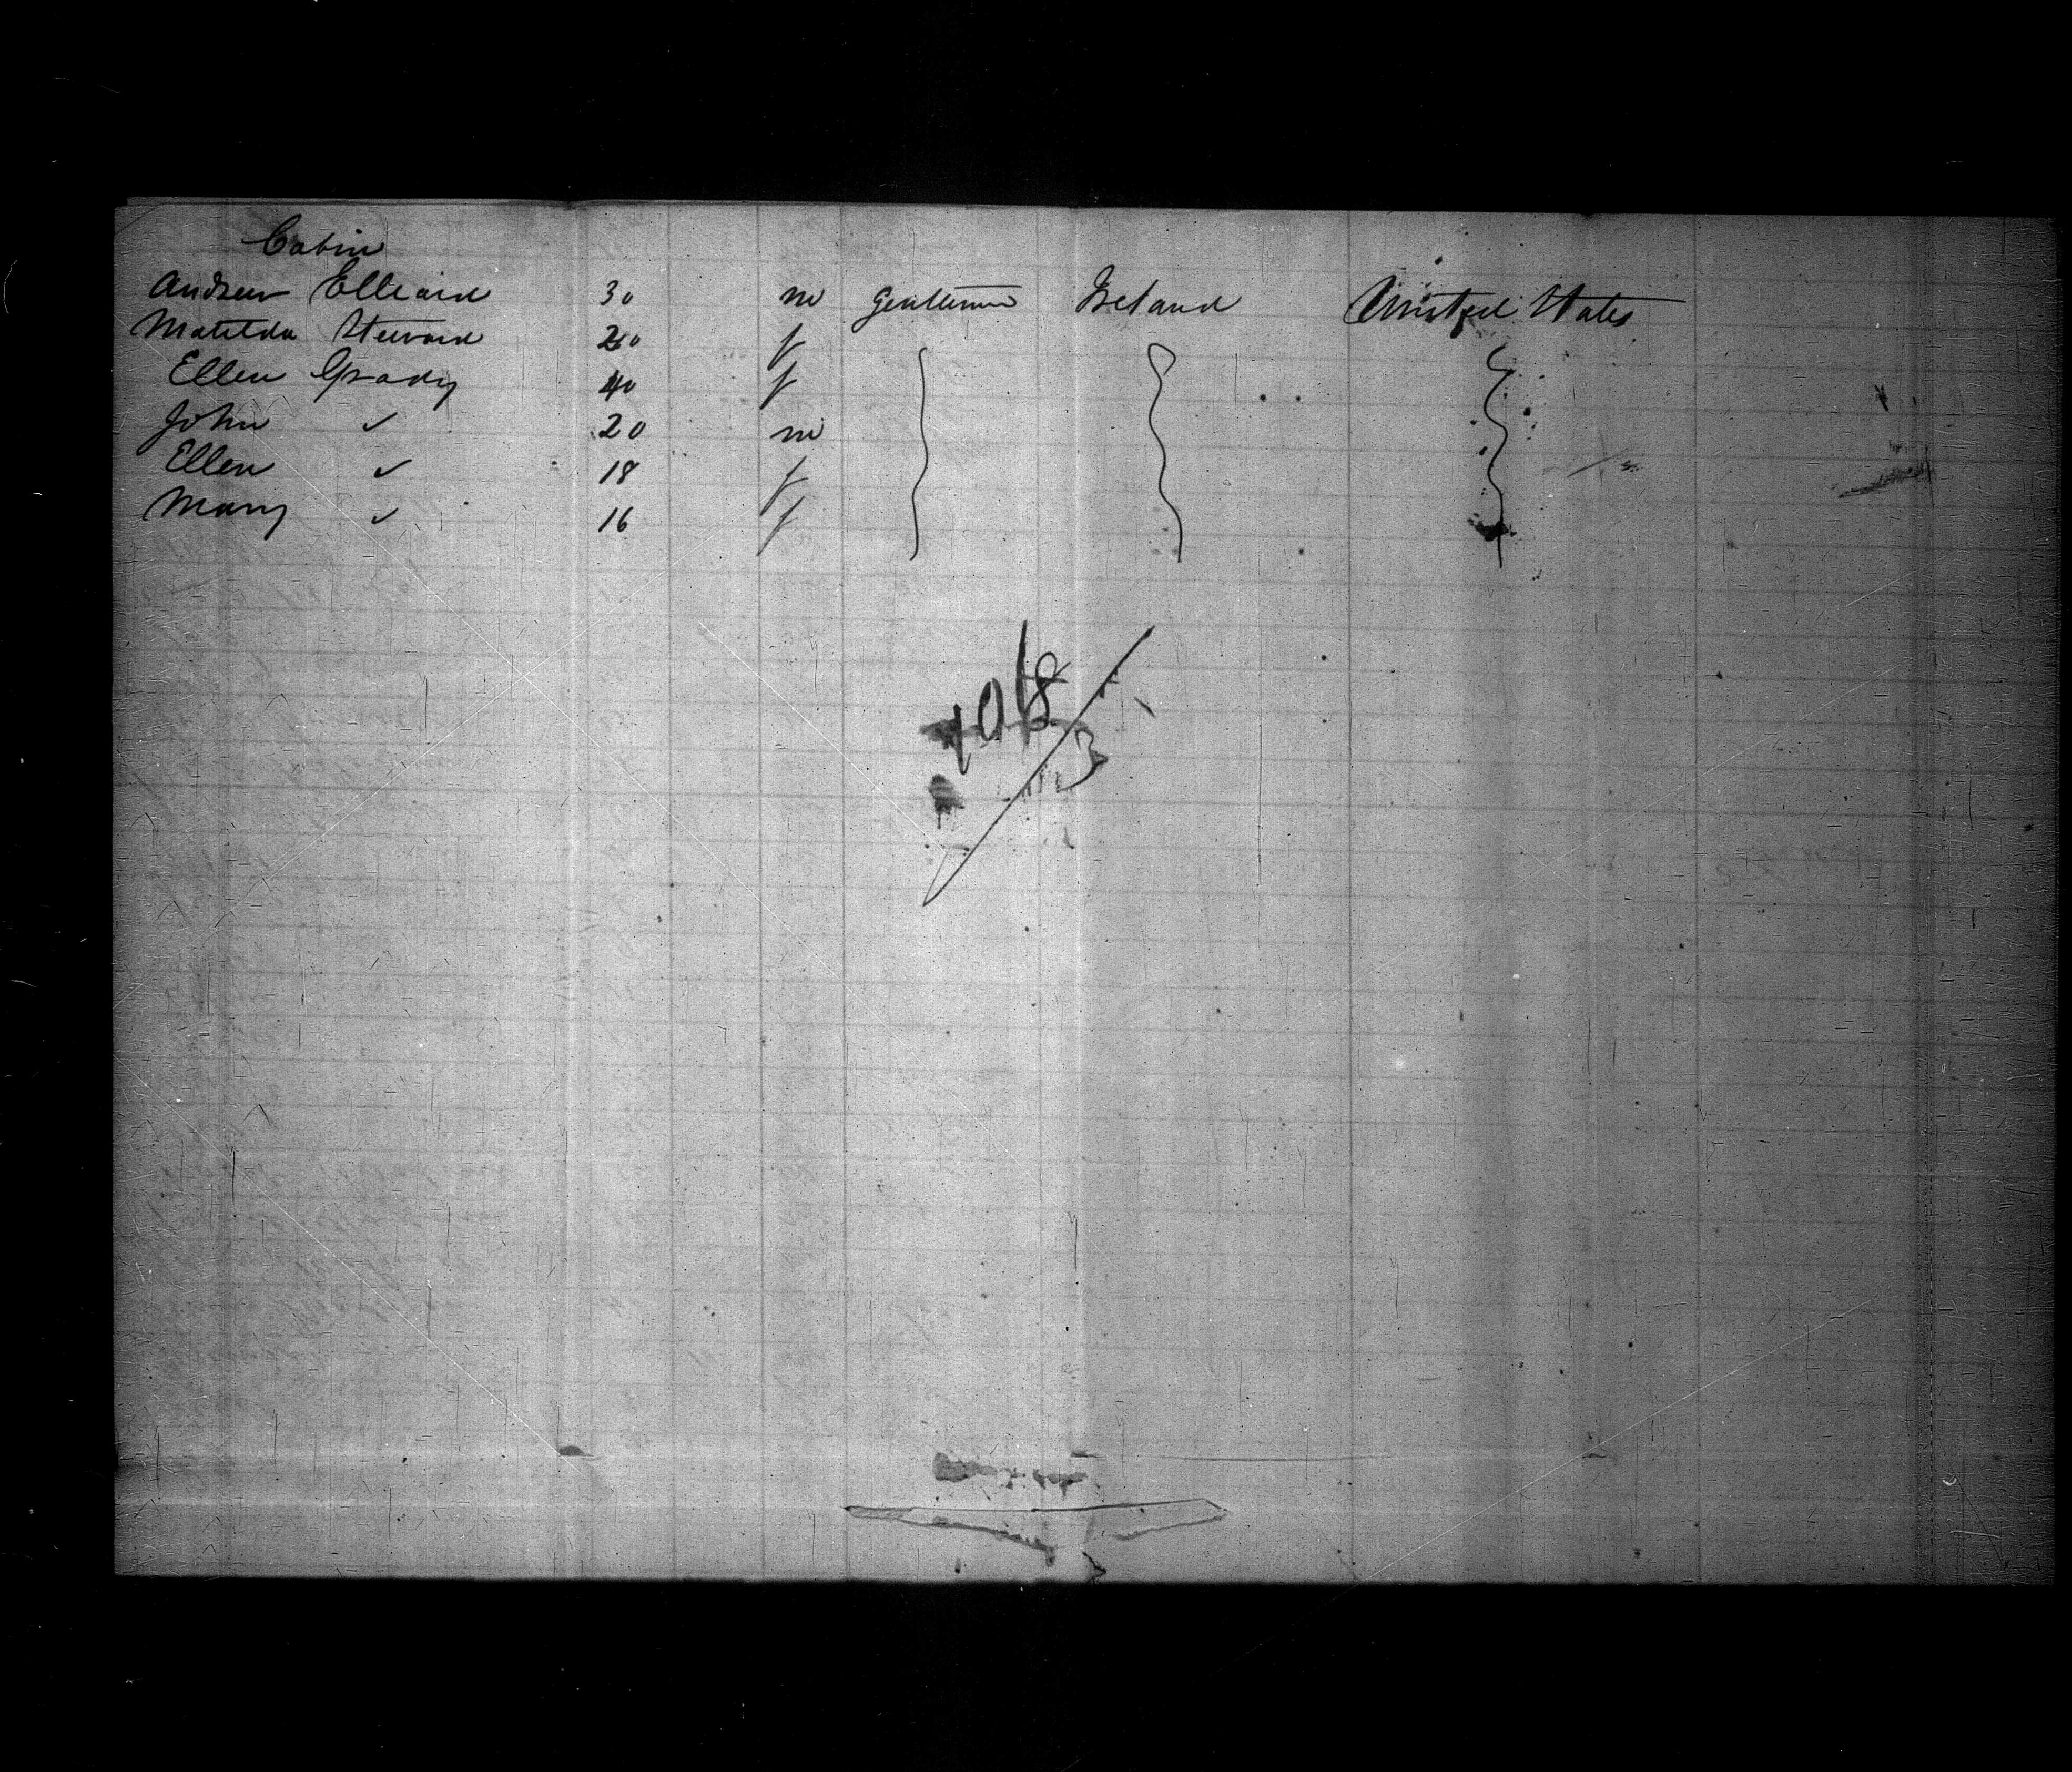 Cabin
Andrew Elleard 30 m Gentleman Ireland United States
Matilda Steward 20 f
Ellen Grady 40 f
John ✓ 20 m
Ellen ✓ 18 f
Mary ✓ 16 f
1018
3